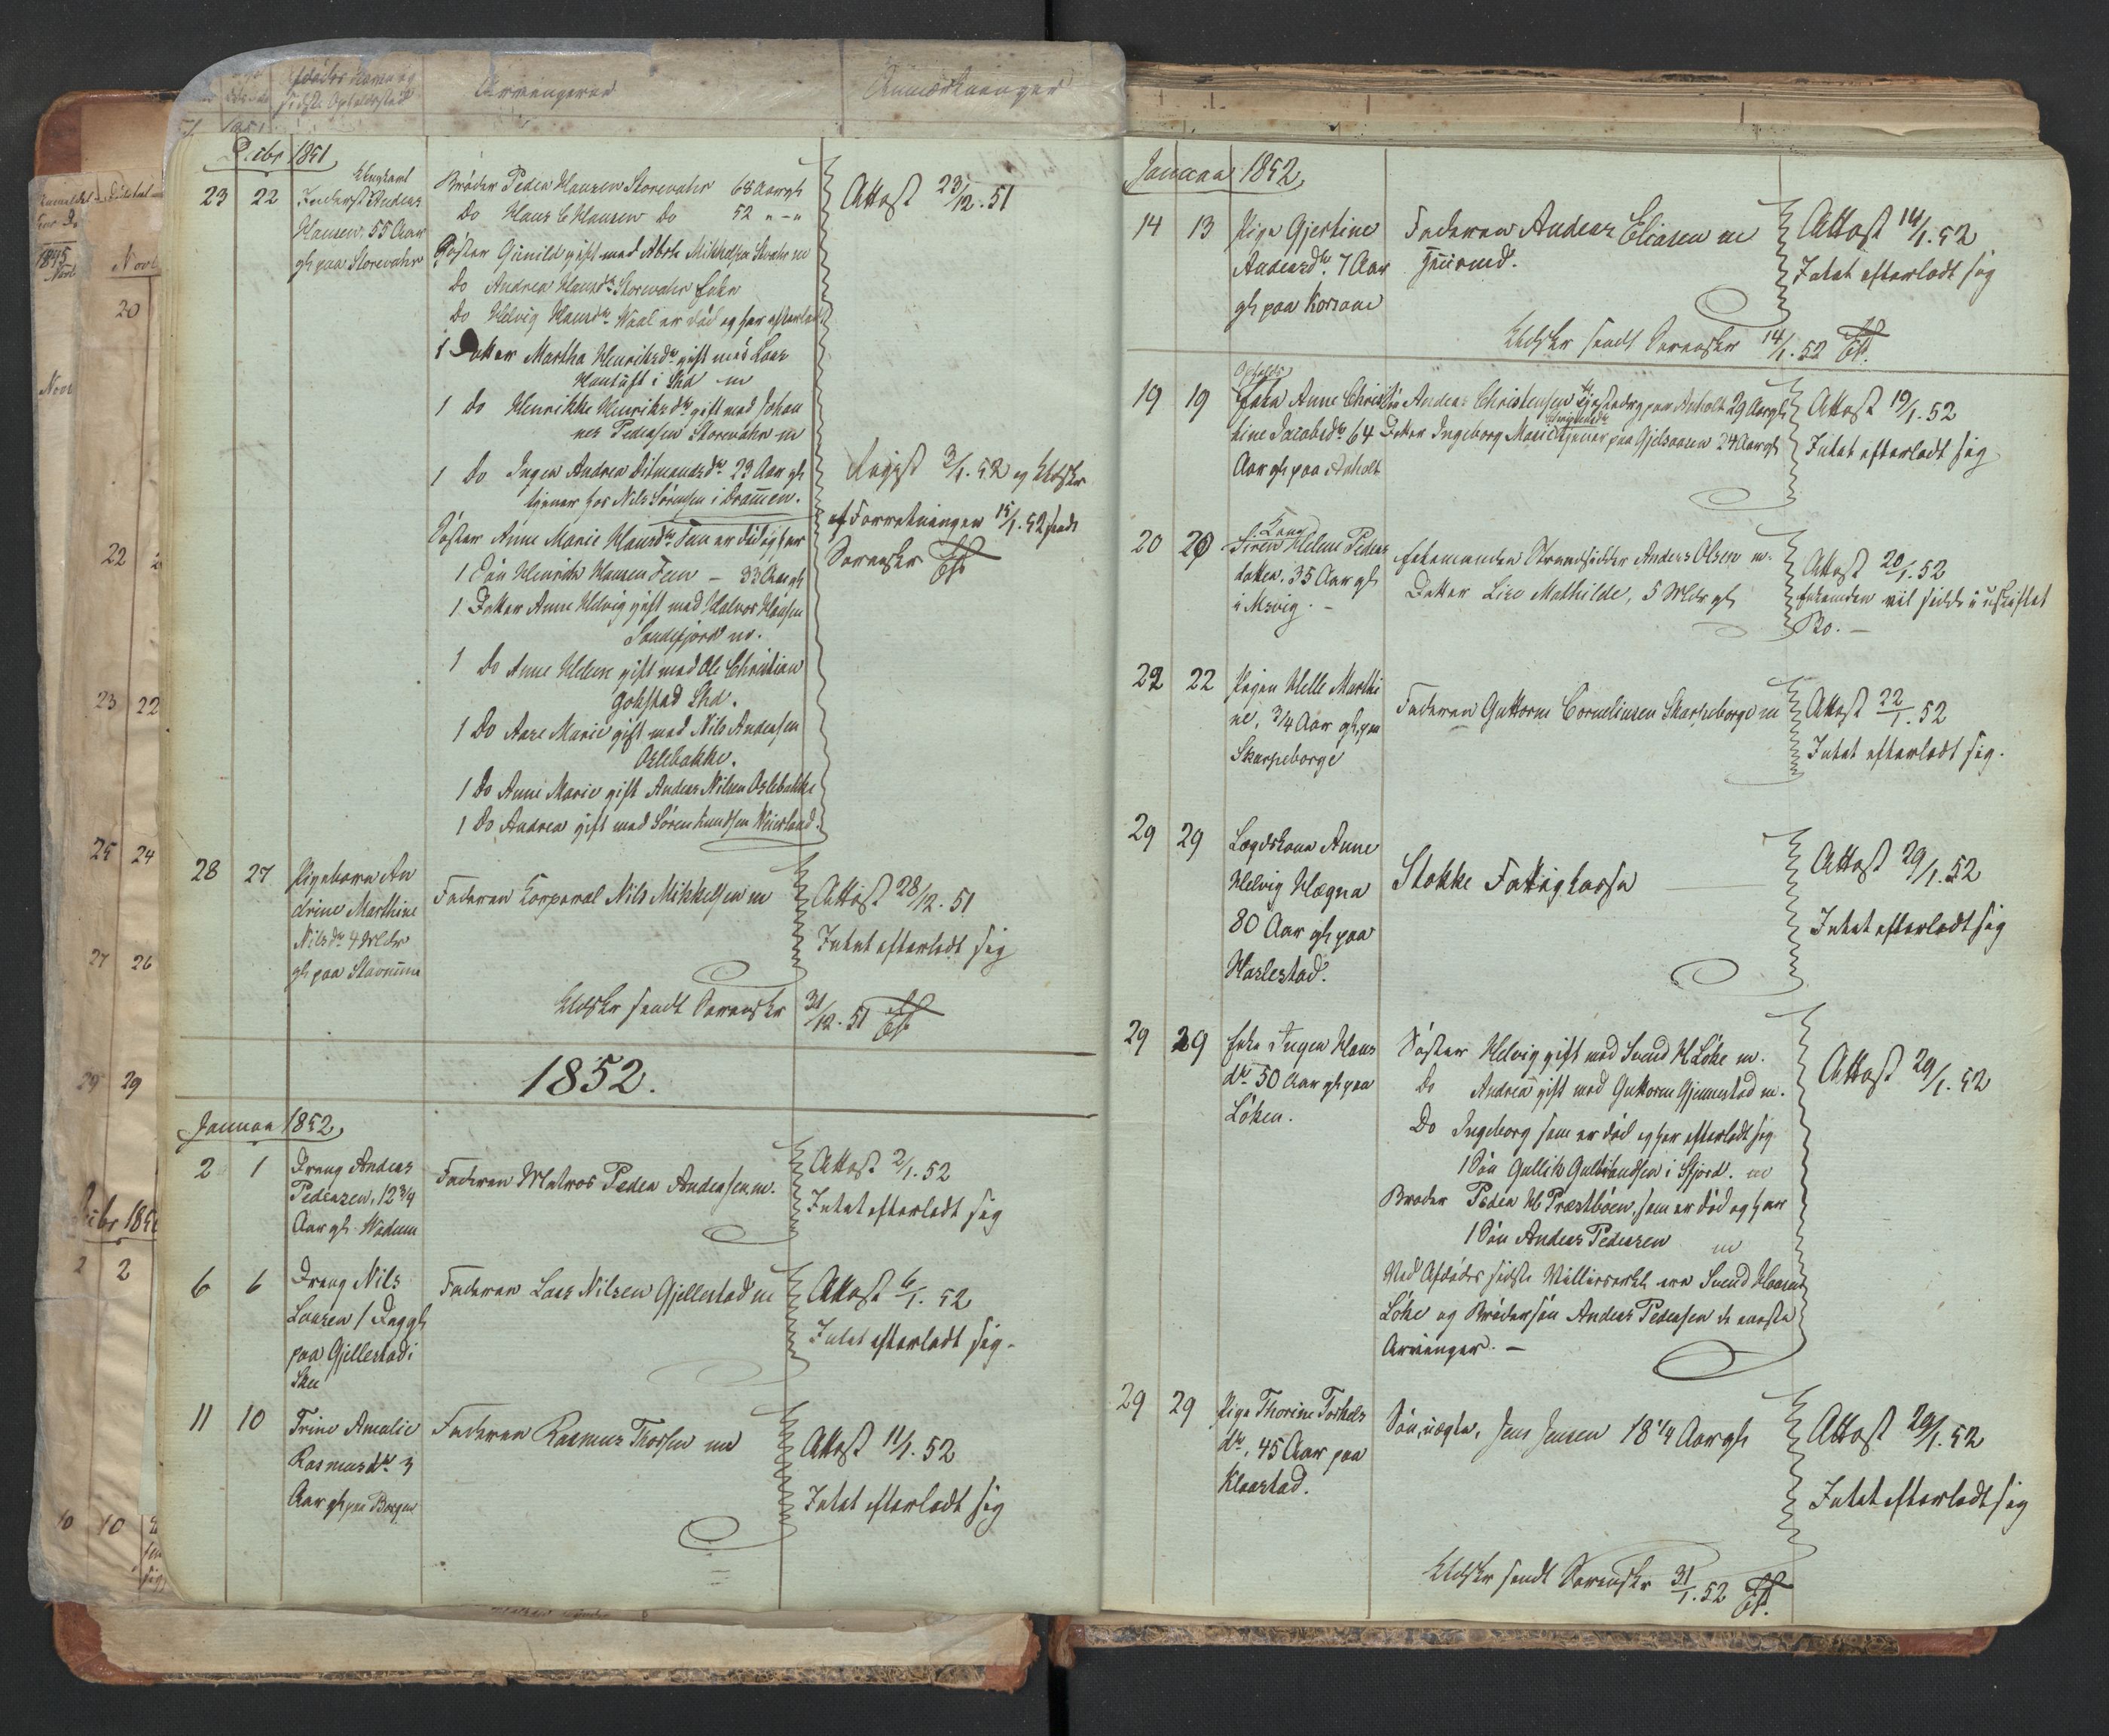 Afdødes Navn og
sidste Opholdssted
Arvingerne
Anmærkninger
Decbr 1851
23 22 Ungkarl
Inderst Anders
Hansen 55 Aar
gl paa Storevahr
Broder Peder Hansen Storevahr 68 Aar gl
Do Hans C Hansen Do 52 " – "
Søster Gunild gift med Abrah Mikkelsen m
Do Andrea Hansdr Storevahr Enke
Do Helvig Hansdr Waal er død og har efterladt
1 Datter Martha Henriksdr gift med Lars
Hantuft i Shd m
1 do Henrikke Henriksdr gift med Johan
nes Pedersen Storevahr m
1 Do Inger Andrea Ditmandsdr 23 Aar gl
tjener hos Nils Sørensen i Drammen.
Søster Anne Marie Hansdr Feen er død og har
1 Søn Henrich Hansen Feen – 33 Aar gl
1 Datter Anne Helvig gift med Halvor Hansen
Sandefjord m.
1 Do Anne Helene gift med Ole Christian
Gokstad Shd.
1 Do Aase Marie gift med Nils Andersen
Oslebakke.
1 Do Anne Marie gift Anders Nilsen Oslebakke
1 Do Andrea gift med Søren Knudsen Neierland.
Attest 23/12. 51
Regist 3/1. 52 og Udskr
af Forretningen 15/1. 52 sendt
Sorenskr
28 27 Pigebarn An
drine Marthine
Nilsdr 4 Mdr
gl paa Stavnum
Faderen Korporal Nils Mikkelsen m
Attest 28/12. 51
Intet efterladt sig
Udskr sendt Sorenskr 31/12. 51
1852.
Januar 1852
2 1 Dreng Anders
Pedersen, 12 3/4
Aar gl. Wadum
Faderen Matros Peder Andersen m.
Attest 2/1. 52
Intet efterladt sig
6 6 Dreng Nils
Larsen 1 Dag gl
paa Gjellestad i
Skee
Faderen Lars Nilsen Gjellestad m
Attest 6/1. 52
Intet efterladt sig.
11 10 Trine Amalie
Rasmusdr 3
Aar gl paa Borgen
Faderen Rasmus Thorsen m
Attest 11/1. 52
Intet efterladt sig
Januar 1852
14 13 Pige Gjertine
Andersdr. 7 Aar
gl paa Korsane
Faderen Anders Eliasen m
Attest 14/1. 52
Intet efterladt sig
Udskr sendt Sorenskr 14/1. 52
19 19 Opholds
Enke Anne Chris
tine Jacobsdr 64
Aar gl paa Aaholt
Søn Anders Christensen paa Aaholt 29 Aar gl
Datter Ingeborg Marie tjener paa Gjelsaasen 24 Aar gl
Attest 19/1. 52
Intet efterladt sig
20 20 Kone
Siren Helene Peders
datter, 35 Aar gl
i Mevig. –
Enkemanden Strandsidder Anders Olsen m.
Datter Lise Mathilde, 5 Mdr gl
Attest 20/1. 52
Enkemden vil sidde i uskiftet
Bo. –
22 22 Pigen Helle Marthi
ne, 3/4 Aar gl, paa
Skarpeborge
Faderen Guttorm Corneliusen Skarpeborge m
Attest 22/1. 52
Intet efterladt sig.
29 29 Lægdskone Anne
Helvig Hægna
80 Aar gl paa
Haslestad.
Stokke Fattigkasse
Attest 29/1. 52
Intet efterladt sig
29 29 Enke Inger Hans
dr 50 Aar gl paa
Løken.
Søster Helvig gift med Svend H Løke m.
Do Andrea gift med Guttorm Gjennestad m.
Do Ingeborg som er død og har efterladt sig
1 Søn Gullik Gulbrandsen i Sfjord. m
Broder Peder H Præstbøen, som er død og har
1 Søn Anders Pedersen m
Ved Afdødes sidste Villieserkl ere Svend Hansen
Løke og Brødersøn Anders Pedersen de eneste
Arvinger. –
Attest 29/1. 52
29 29 Pige Thorine Torkels
dr, 45 Aar paa
Klaastad.
Søn, uægte, Jens Jensen 18 1/4 Aar gl
Attest 29/1. 52
Intet efterladt sig
Udskr sendt Sorenskr 31/1. 52